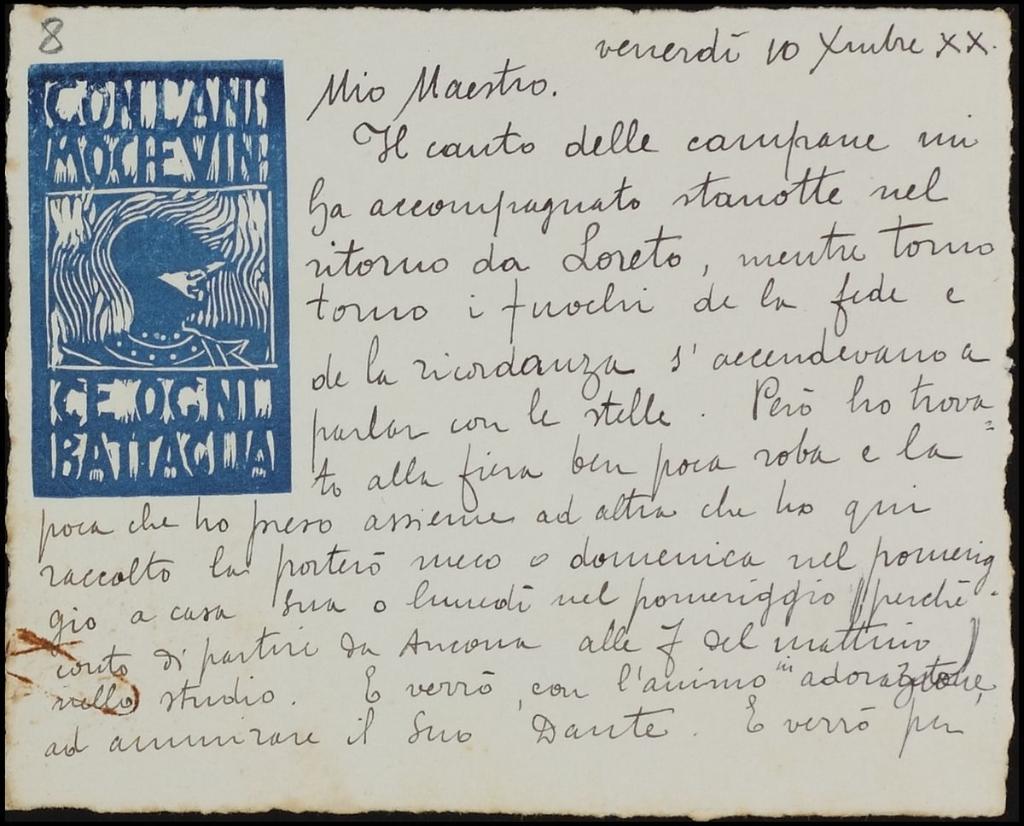 8
venerdì 10 Xmbre XX.
Mio Maestro.
Il canto delle campane mi
ha accompagnato stanotte nel
ritorno da Loreto, mentre torno
torno i fuochi de la fede e
de la ricordanza s'accendevano a
parlar con le stelle. Però ho trova=
to alla fiera ben poca roba e la
poca che ho preso assieme ad altra che ho qui
raccolto la porterò meco o domenica nel pomerig
gio a casa sua o lunedì nel pomeriggio (perchè
conto di partire da Ancona alle 7 del mattino)
nello studio. E verrò, con l'animo in adorazione,
ad ammirare il Suo Dante. E verrò per
CON L'ANI
MO CHE VIN
CE OGNI
BATTAGLIA